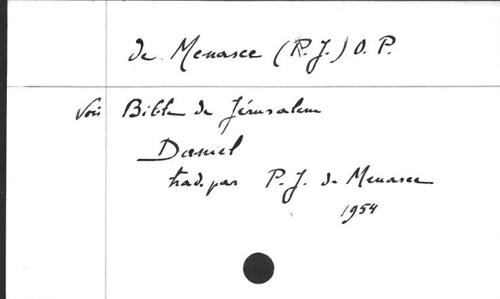 de Menasce (P. J.) O. P.
Voir Bible de Jérusalem
Daniel
trad. par P. J. de Menasce
1954